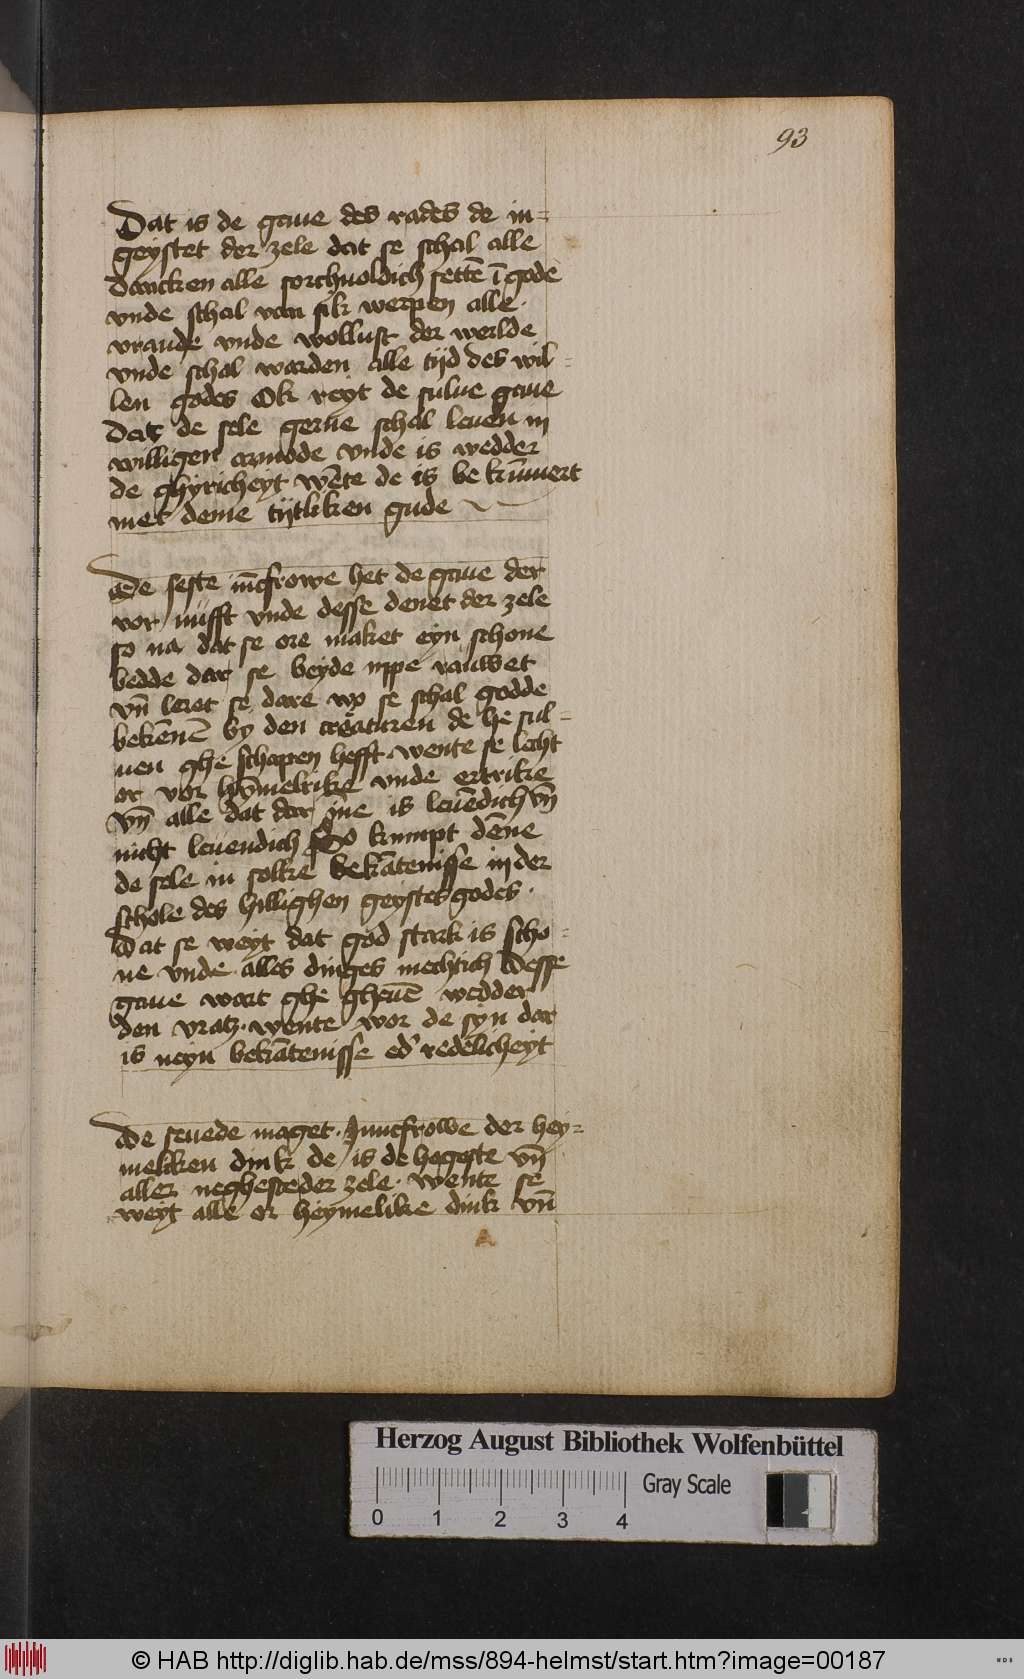 93
Dat is de gaue des rades de in=
geystet der zele dat se schal alle
dancken alle sorchuoldich settē ī gode
vnde schal van sik werpen alle
vraude vnde wollust der werlde
vnde schal warden alle tijd des wil=
len godes Ok reyt de sulue gaue
Dat de sele gerne schal leuen in
willigen armode vnde is wedder
de ghyricheyt wēte de is be kūmert
met deme tijtliken gude
De seste iūcfrowe het de gaue der
vor nufft vnde desse denet der zele
so na dat se ore maket eyn schone
bedde dar se beyde vppe rauwet
vn̄ leret se dare wo se schal godde
bekēnē by den creaturen de he sul=
uen ghe schapen hefft. wente se lecht
or vor hȳmelrike vnde ertrike
vn̄ alle dat dar jne is leuēdich vn̄
nicht leuendich So kumpt dēne
de sele in solke bekātenisse in der
schole des hillighen geystes godes.
Dat se weyt dat god stark is scho=
ne vnde alles dinges mechtich Desse
gaue wart ghe gheuē wedder
den vratz. wente wor de syn dar
is neyn bekātenisse ed' redelicheyt
De seuede maget. Juncfrowe der hey=
meliken dink de is de hogeste vn̄
aller negheste der zele. wente se
weyt alle or heymelike dink vn̄
Herzog August Bibliothek Wolfenbüttel
Gray Scale
0 1 2 3 4
© HAB http://diglib.hab.de/mss/894-helmst/start.htm?image=00187